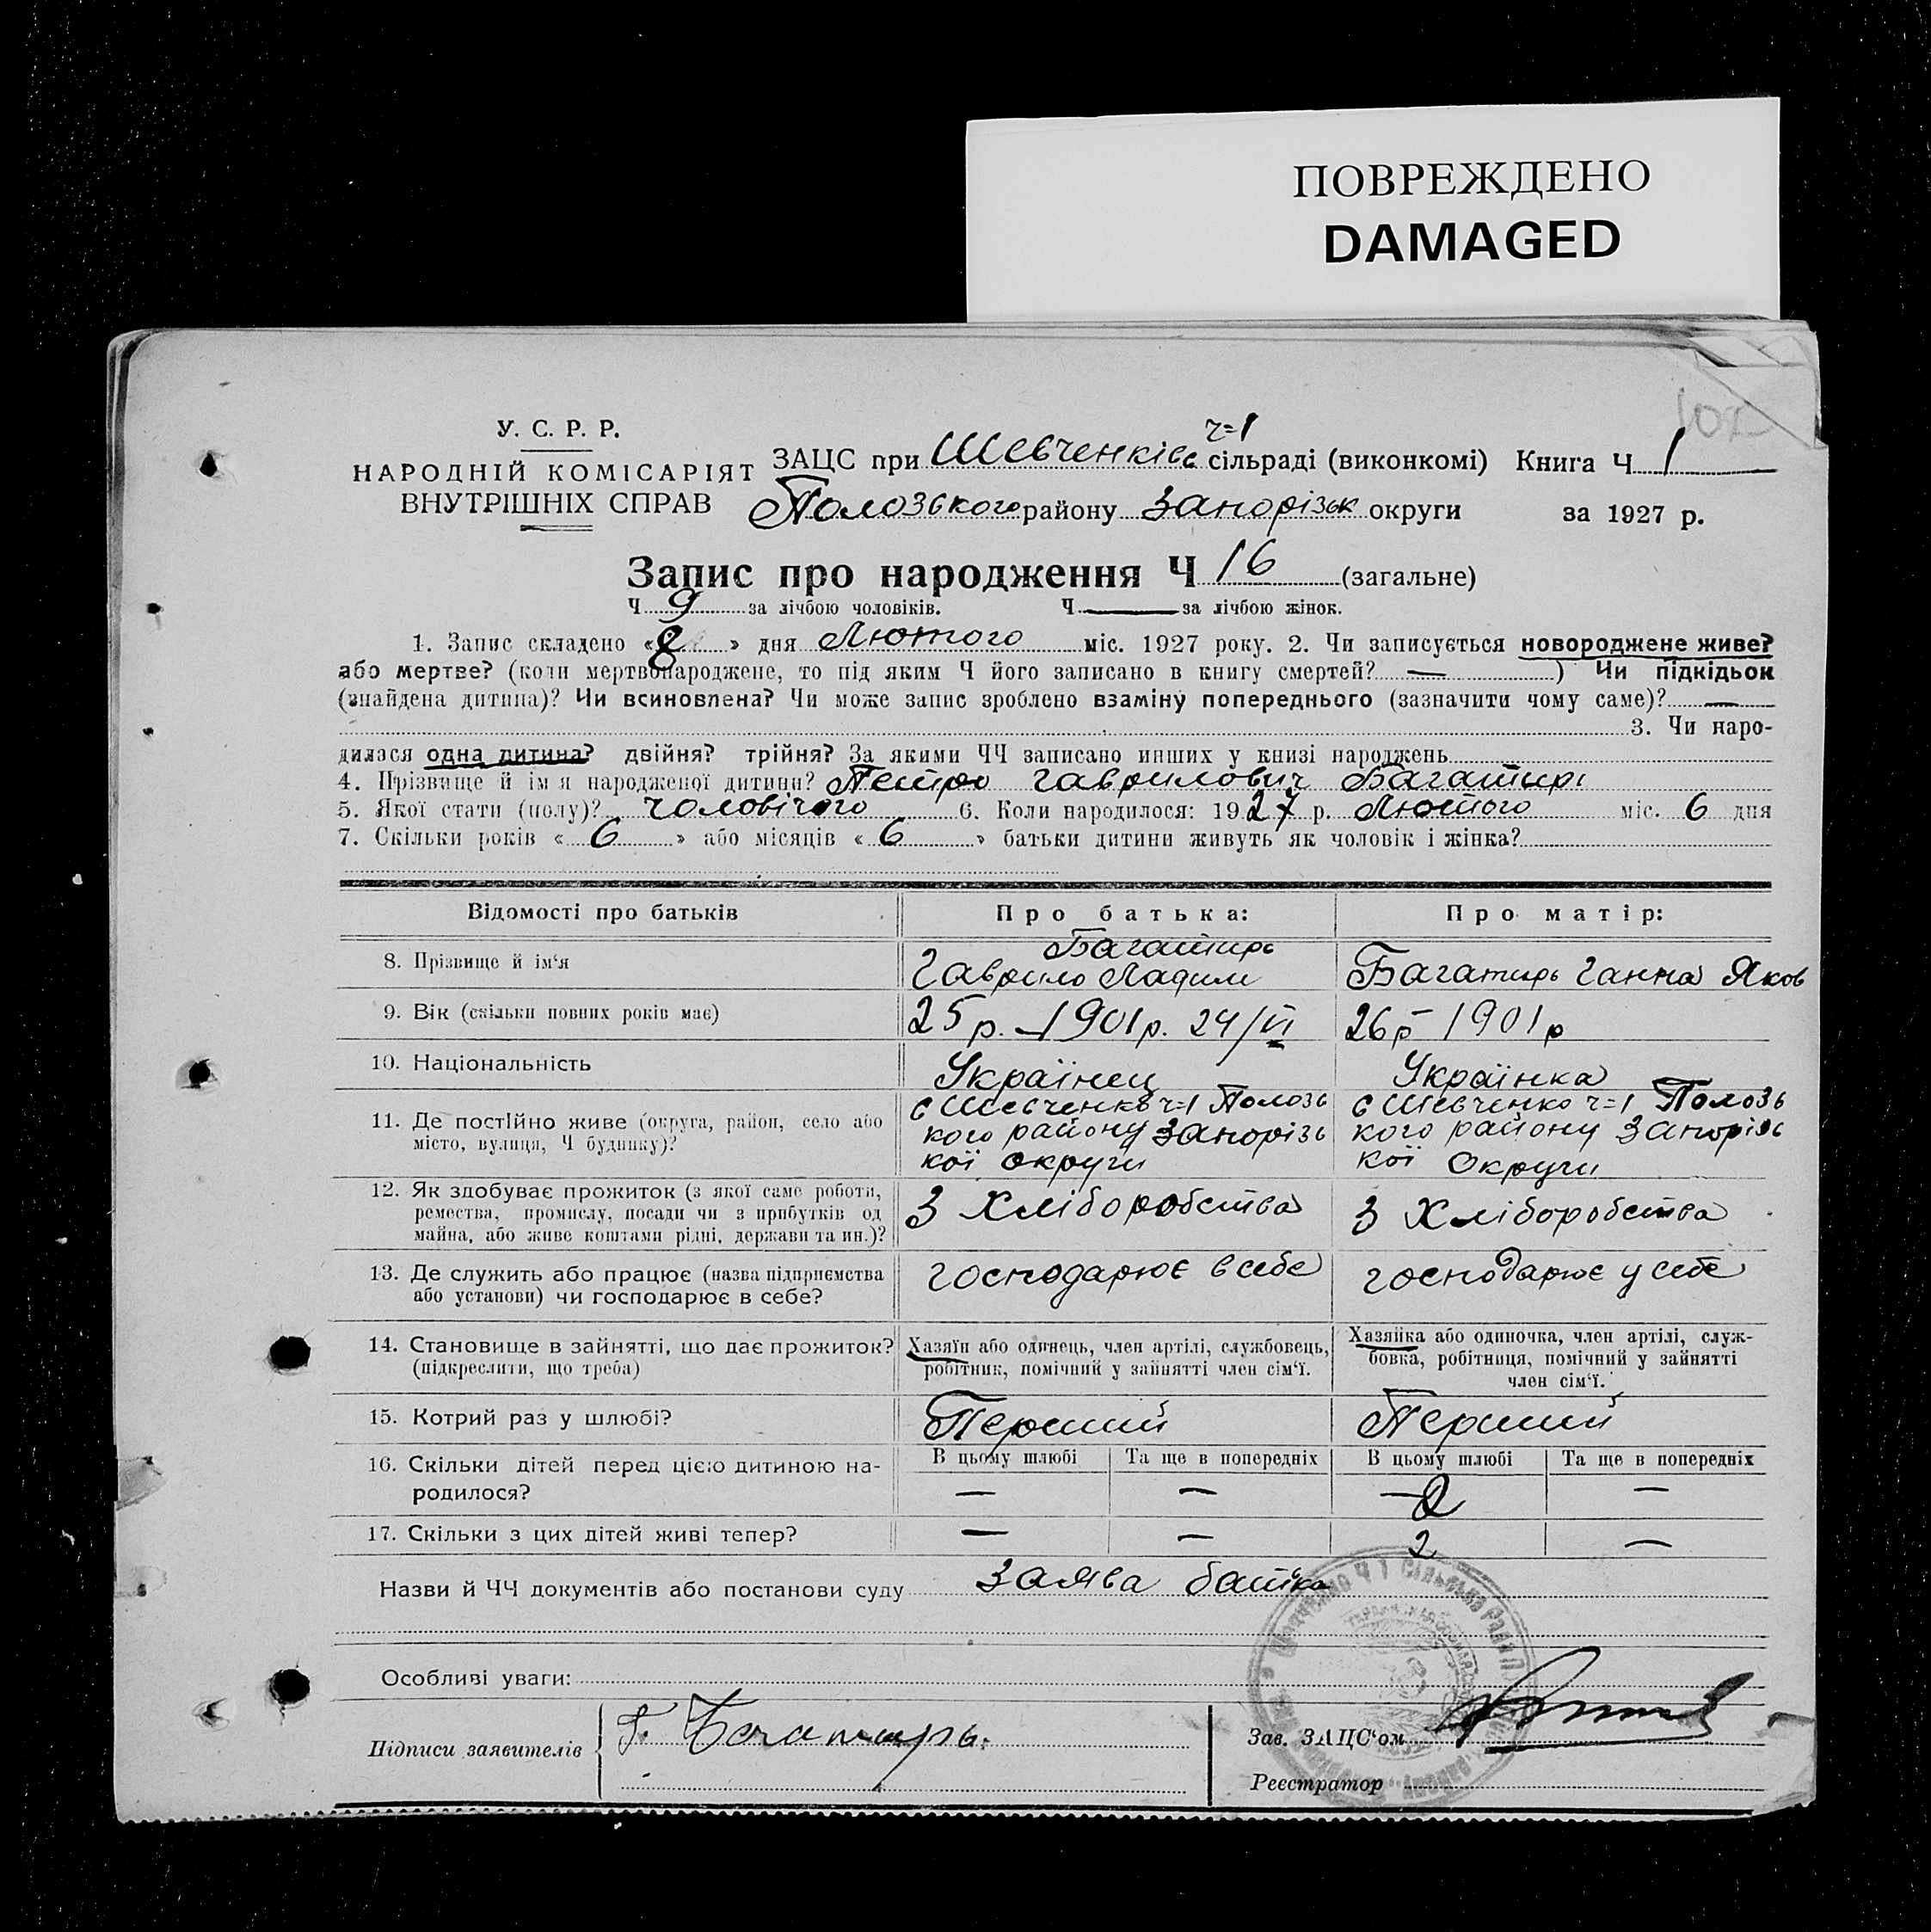 ПОВРЕЖДЕНО
DAMAGED
107
У. С. Р. Р.
НАРОДНІЙ КОМІСАРІЯТ
ВНУТРІШНІХ СПРАВ
ч=1
ЗАЦС при Шевченківс сільраді (виконкомі) Книга Ч 1
Полозького району Запорізьк округи за 1927 р.
Запис про народження Ч 16 (загальне)
Ч 9 за лічбою чоловіків. Ч — за лічбою жінок.
1. Запис складено « 8 » дня Лютого міс. 1927 року. 2. Чи записується новороджене живе?
або мертве? (коли мертвонароджене, то під яким Ч його записано в книгу смертей? — ) Чи підкідьок
(знайдена дитина)? Чи всиновлена? Чи може запис зроблено взаміну попереднього (зазначити чому саме)? —
3. Чи наро-
дилася одна дитина? двійня? трійня? За якими ЧЧ записано инших у книзі народжень
4. Прізвище й ім'я народженої дитини? Петро Гаврилович Багатирь
5. Якої стати (полу)? чоловічого 6. Коли народилося: 1927 р. Лютого міс. 6 дня
7. Скільки років « 6 » або місяців « 6 » батьки дитини живуть як чоловік і жінка?
Відомості про батьків Про батька: Про матір:
Багатирь
8. Прізвище й ім'я Гаврило Ладим Багатирь Ганна Яков
9. Вік (скільки повних років має) 25 р. – 1901 р. 24/VI 26 р – 1901 р
10. Національність Українец Українка
11. Де постійно живе (округа, район, село або місто, вулиця, Ч будинку)?
с Шевченко ч=1 Полозь
кого району Запорізь
кої округи
с Шевченко ч=1 Полозь
кого району Запорізь
кої Округи
12. Як здобуває прожиток (з якої саме роботи,
ремества, промислу, посади чи з прибутків од
майна, або живе коштами рідні, держави та ин.)?
З Хліборобства З Хліборобства
13. Де служить або працює (назва підприємства
або установи) чи господарює в себе?
господарює в себе господарює у себе
14. Становище в зайнятті, що дає прожиток?
(підкреслити, що треба)
Хазяїн або одинець, член артілі, службовець,
робітник, помічний у зайнятті член сім'ї.
Хазяйка або одиночка, член артілі, служ-
бовка, робітниця, помічний у зайнятті
член сім'ї.
15. Котрий раз у шлюбі? Перший Перший
16. Скільки дітей перед цією дитиною на-
родилося?
В цьому шлюбі Та ще в попередніх В цьому шлюбі Та ще в попередніх
— — 2 —
17. Скільки з цих дітей живі тепер? — — 2 —
Назви й ЧЧ документів або постанови суду заява батька
Особливі уваги:
Підписи заявителів Г. Богатирь.
Зав. ЗАЦС'ом
Реєстратор